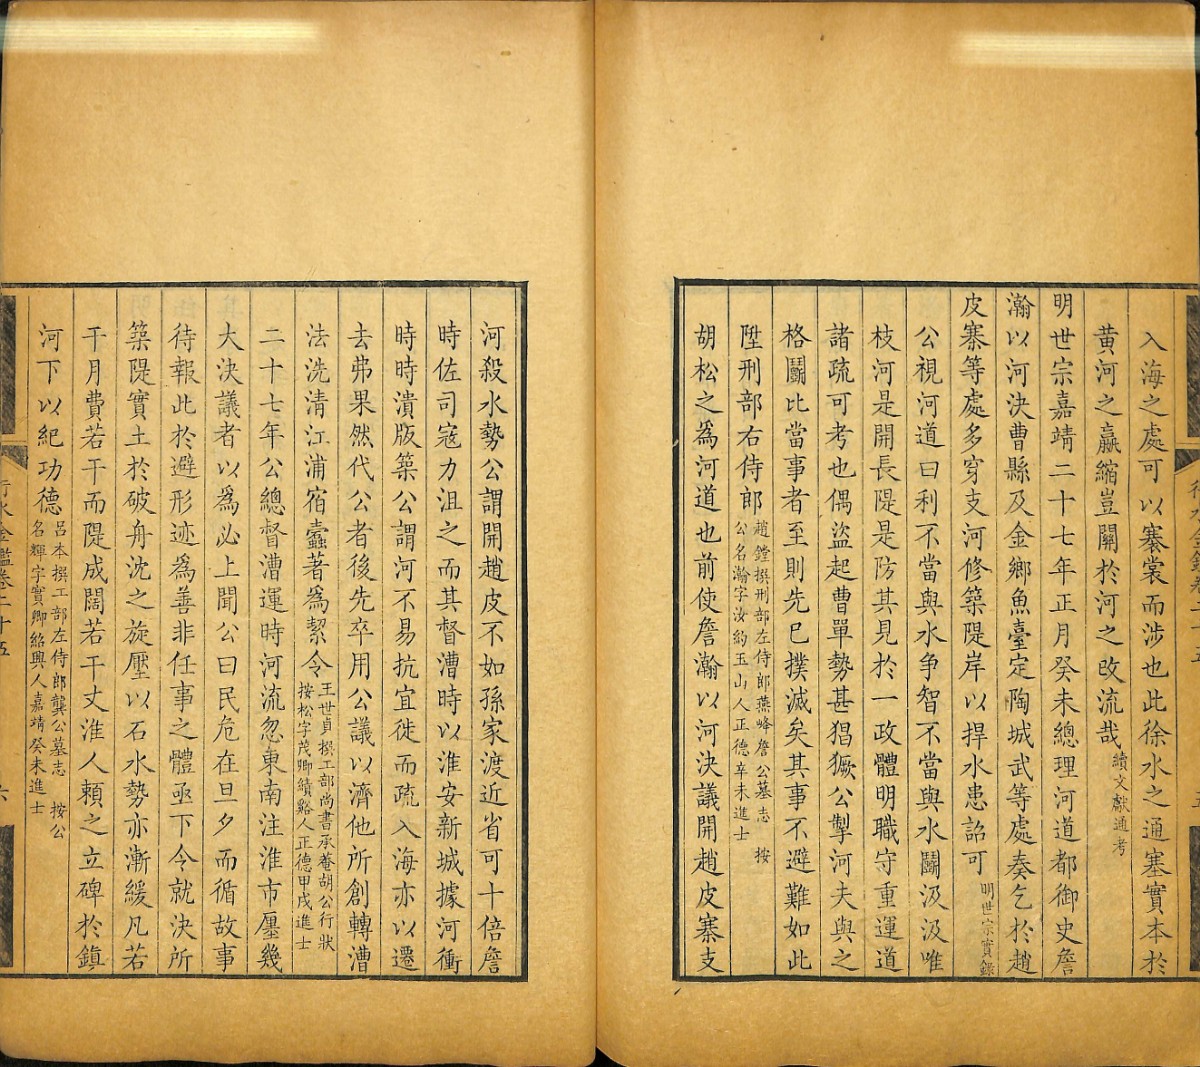 入海之處可以褰裳而涉也此徐水之通塞實本於
黃河之羸縮豈關於河之改流哉續文獻通考
明世宗嘉靖二十七年正月癸未總理河道都御史詹
瀚以河決曹縣及金鄉魚臺定陶城武等處奏乞於趙
皮寨等處多穿支河修築隄岸以捍水患詔可明世宗實錄
公視河道曰利不當與水争智不當與水鬬汲汲唯
枝河是開長隄是防其見於一政體明職守重運道
諸疏可考也偶盜起曹單勢甚猖獗公掣河夫與之
格鬬比當事者至則先已撲滅矣其事不避難如此
陞刑部右侍郎趙鏜撰刑部左侍郎燕峰詹公墓志　按
公名瀚字汝約玉山人正德辛未進士
胡松之為河道也前使詹瀚以河決議開趙皮寨支
河殺水勢公謂開趙皮不如孫家渡近省可十倍詹
時佐司寇力沮之而其督漕時以淮安新城據河衝
時時潰版築公謂河不易抗宜徙而疏入海亦以遷
去弗果然代公者後先卒用公議以濟他所創轉漕
法洗清江浦宿蠹著為絜令王世貞撰工部尚書承菴胡公行狀
按松字茂卿績谿人正德甲戌進士
二十七年公總督漕運時河流忽東南注淮市廛幾
大決議者以為必上聞公曰民危在旦夕而循故事
待報此於避形迹為善非任事之體亟下令就決所
築隄實土於破舟沈之旋壓以石水勢亦漸緩凡若
干月費若干而隄成闊若干丈淮人賴之立碑於鎮
河下以紀功德呂本撰工部左侍郎龔公墓志　按公
名輝字實卿紹興人嘉靖癸未進士
行水金鑑卷二十五
六